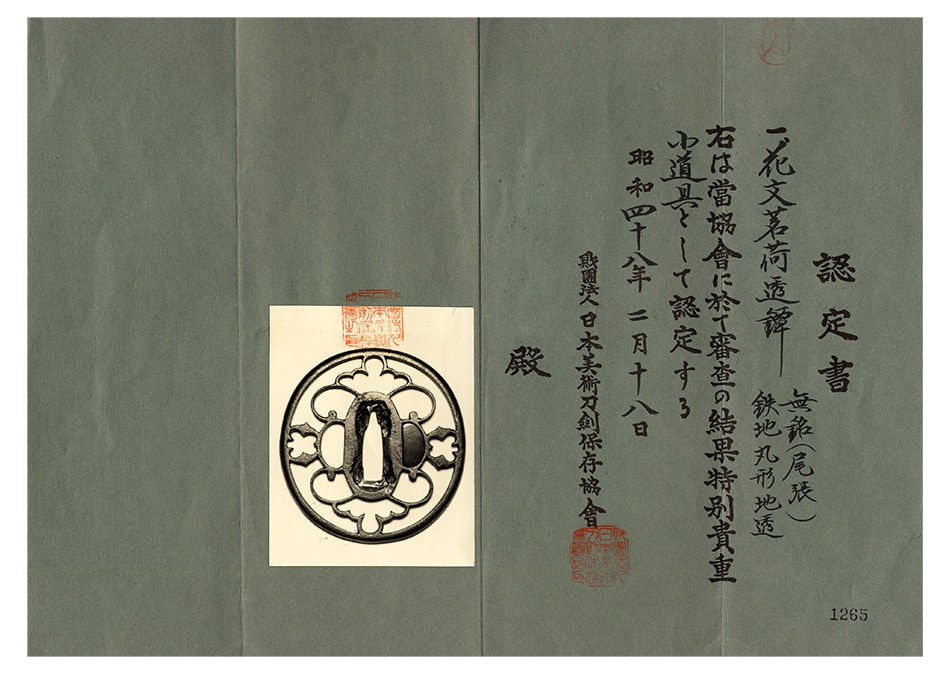 認定書
一、花文茗荷透鐔
無銘(尾張)
鉄地丸形地透
右は當協會に於て審査の結果特別貴重
小道具として認定する
昭和四十八年二月十八日
財團法人日本美術刀劍保存協會
殿
1265